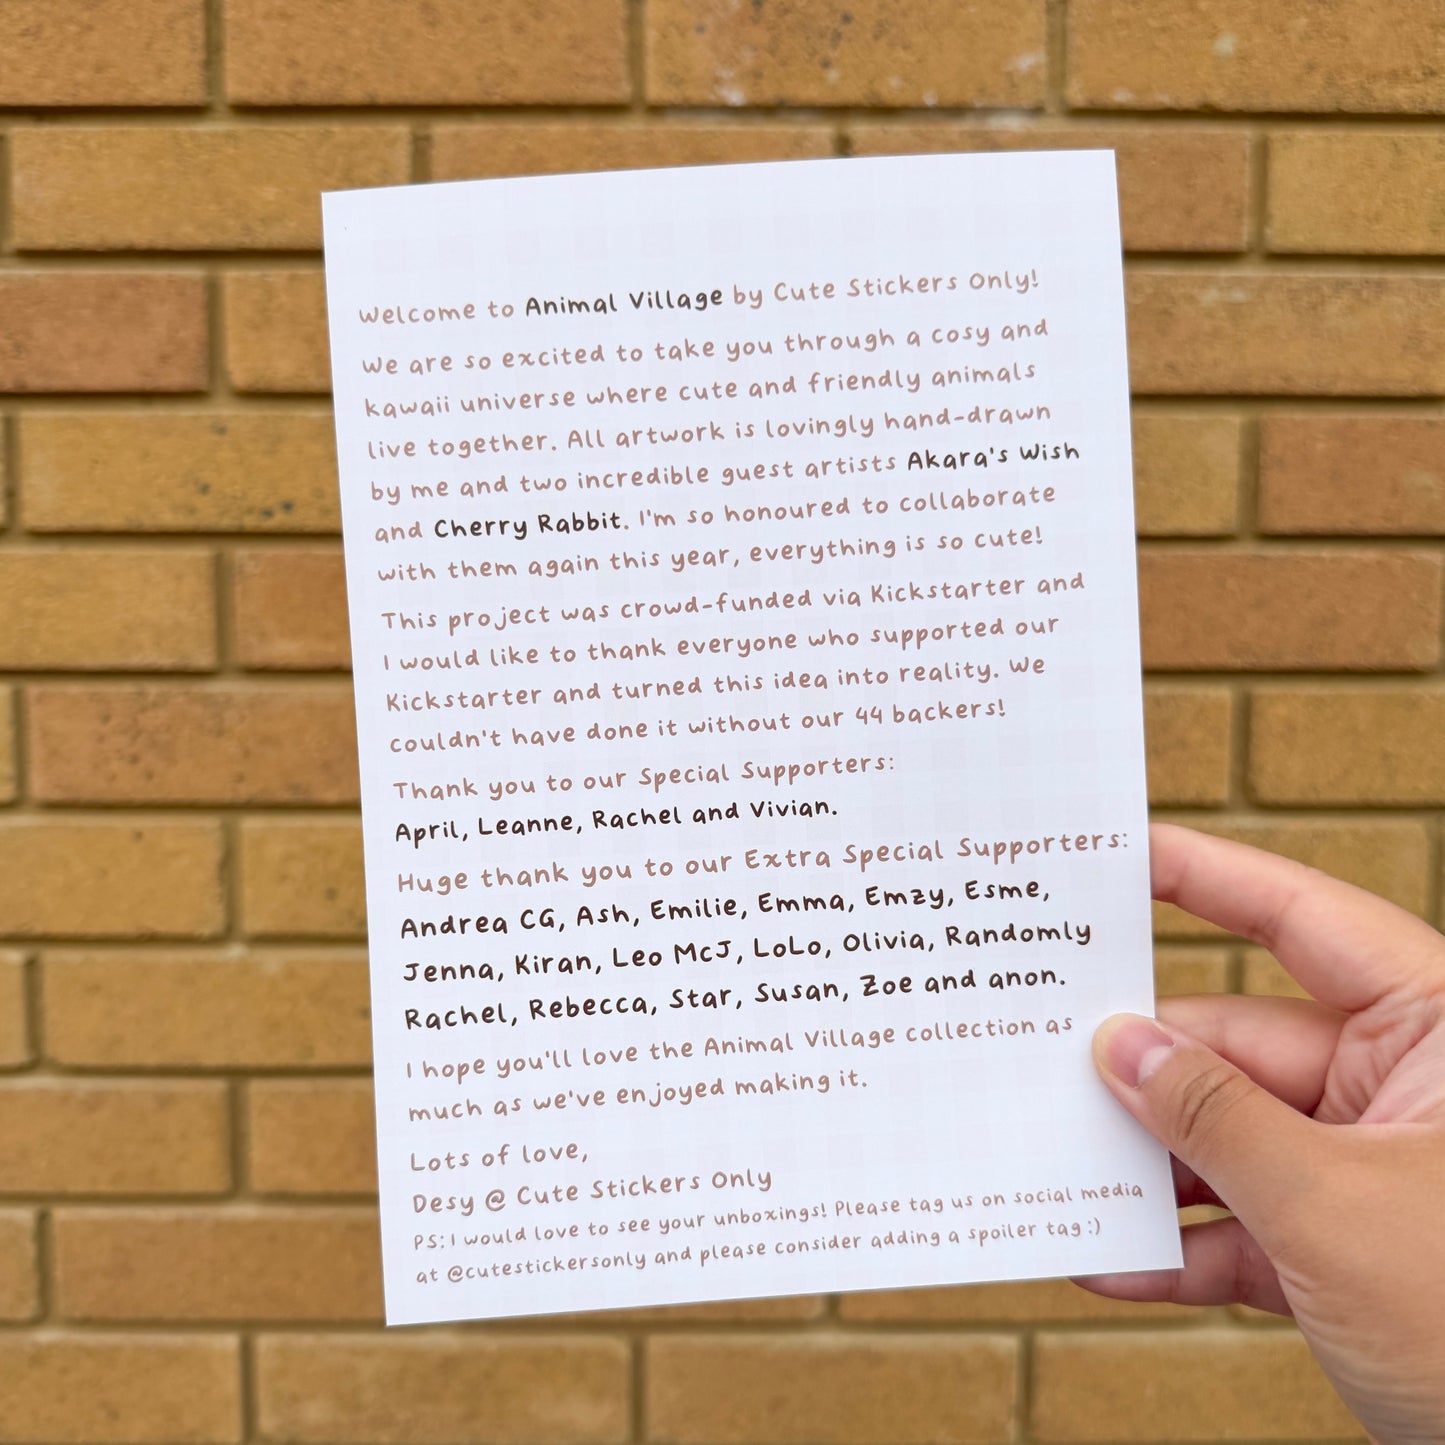 Welcome to Animal Village by Cute Stickers Only!
We are so excited to take you through a cosy and
kawaii universe where cute and friendly animals
live together. All artwork is lovingly hand-drawn
by me and two incredible guest artists Akara's Wish
and Cherry Rabbit. I'm so honoured to collaborate
with them again this year, everything is so cute!
This project was crowd-funded via Kickstarter and
I would like to thank everyone who supported our
Kickstarter and turned this idea into reality. We
couldn't have done it without our 44 backers!
Thank you to our Special Supporters:
April, Leanne, Rachel and Vivian.
Huge thank you to our Extra Special Supporters:
Andrea CG, Ash, Emilie, Emma, Emzy, Esme,
Jenna, Kiran, Leo McJ, LoLo, Olivia, Randomly
Rachel, Rebecca, Star, Susan, Zoe and anon.
I hope you'll love the Animal Village collection as
much as we've enjoyed making it.
Lots of love,
Desy @ Cute Stickers Only
PS: I would love to see your unboxings! Please tag us on social media
at @cutestickersonly and please consider adding a spoiler tag :)